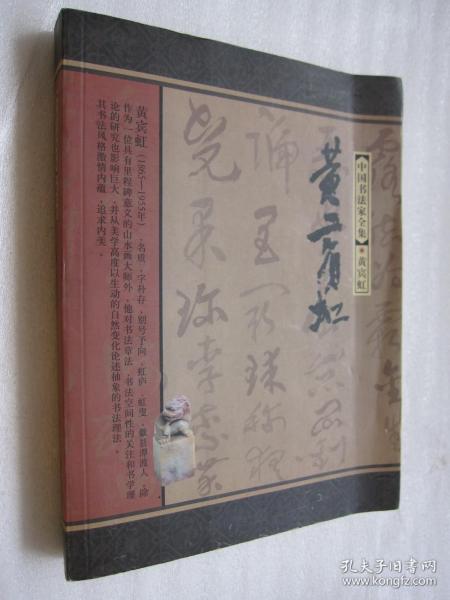 中国书法家全集●黄宾虹
黄宾虹
黄宾虹(1865—1955年),名质,字朴存,别号予向、虹庐、虹叟,歙县潭渡人。除
作为一位具有里程碑意义的山水画大师外,他对书法章法、书法空间性的关注和书学理
论的研究也影响巨大,并从美学高度以生动的自然变化论述抽象的书法理法。
其书法风格激情内蕴,追求内美。
孔夫子旧书网
www.kongfz.com